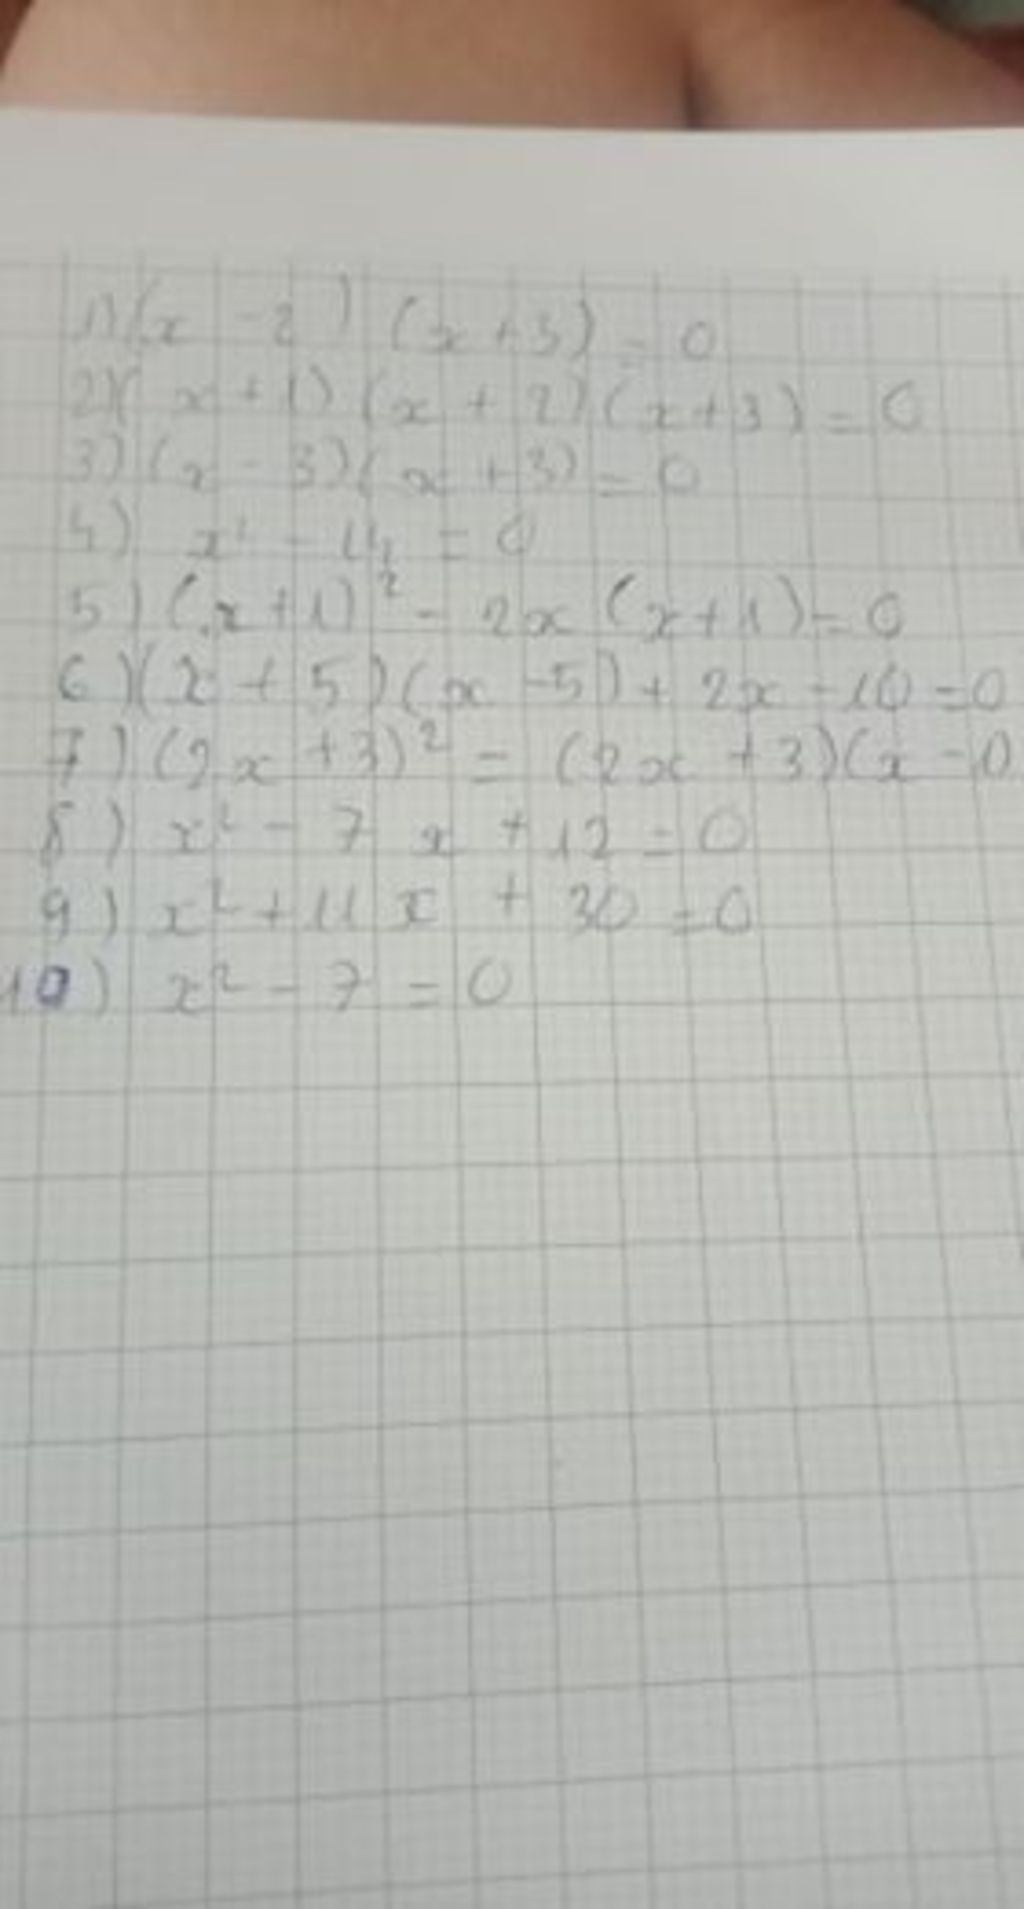 1) (x - 2) (x+3) = 0
2) (x + 1) (x + 2) (x+3) = 0
3) (x - 3) (x + 3) = 0
4) x² - 4 = 0
5) (x+1)² - 2x (x+1) = 0
6) (x + 5) (x - 5) + 2x - 10 = 0
7) (2x + 3)² = (2x + 3)(x -
8) x² - 7 x + 12 = 0
9) x² + 11 x + 30 = 0
10) x² - 7 = 0